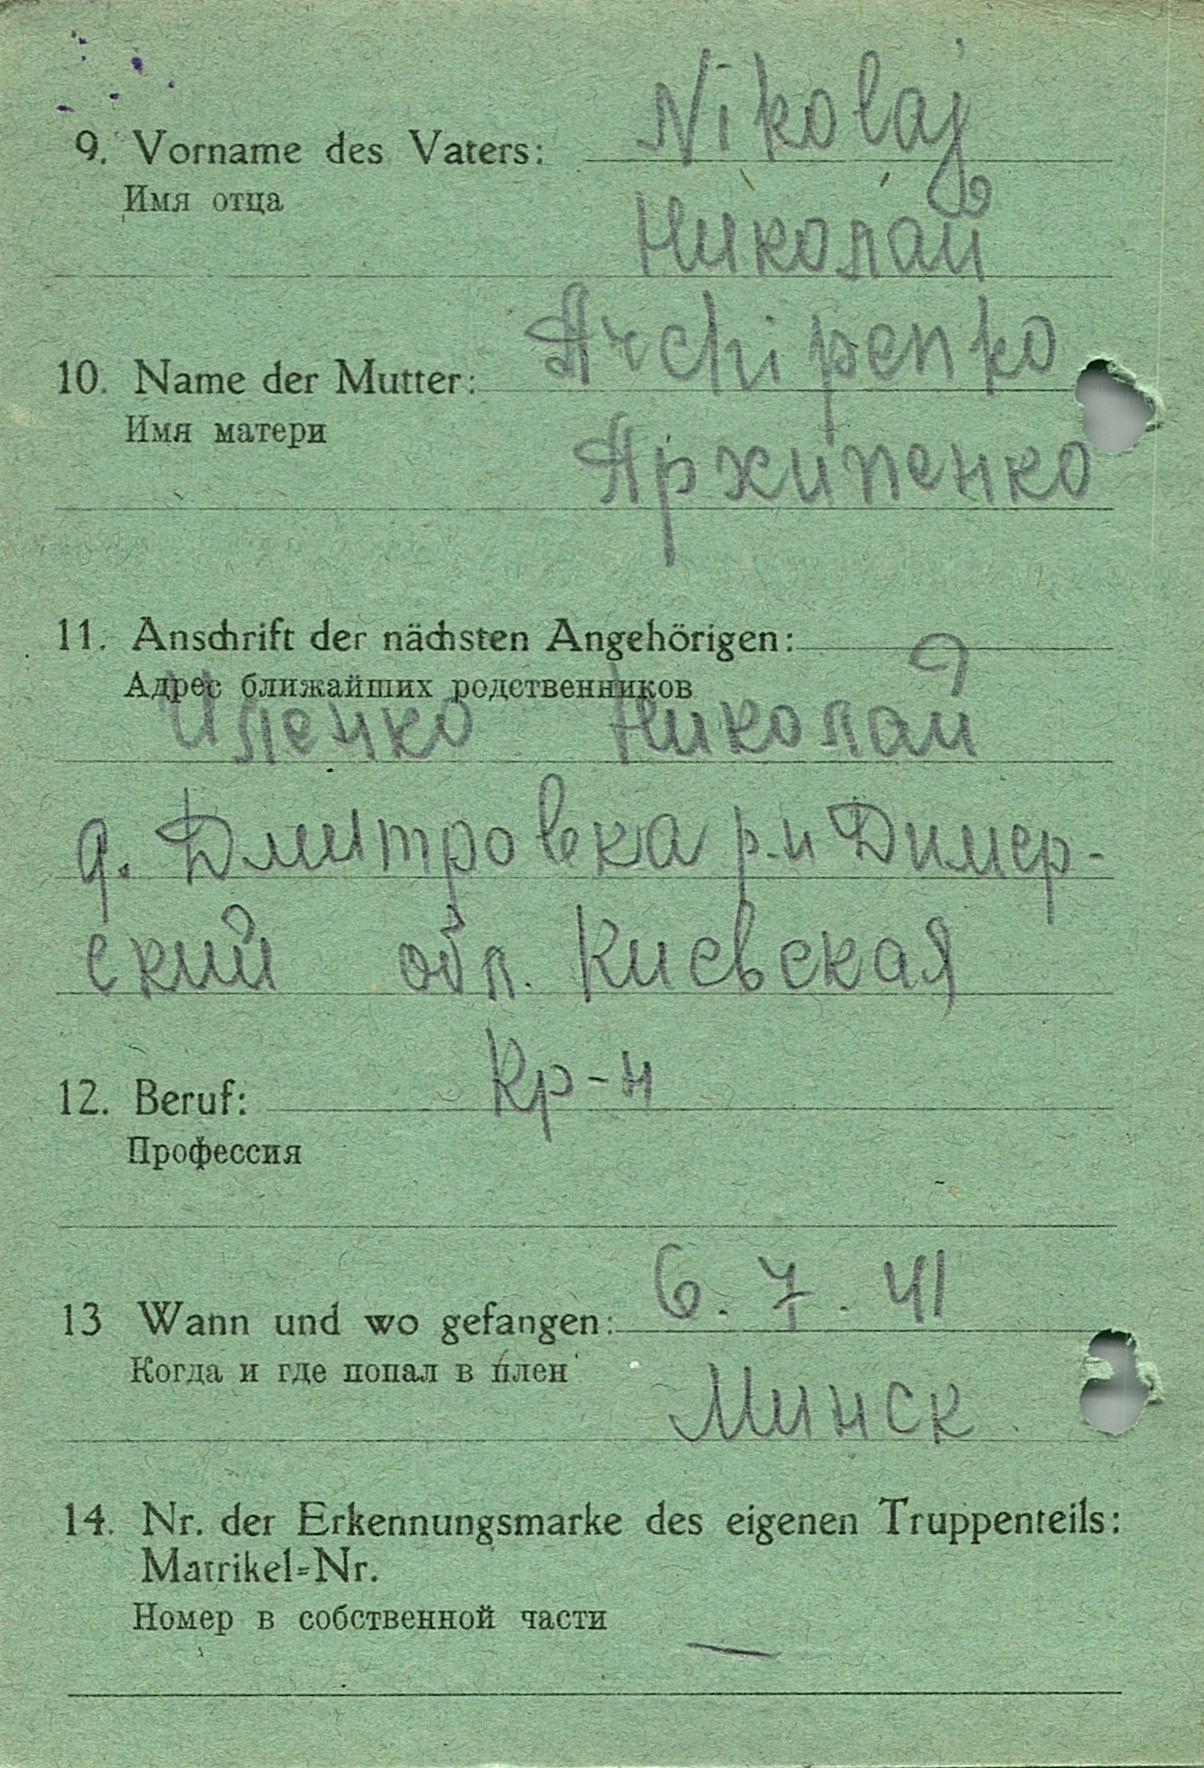 Nikolaj
9. Vorname des Vaters:
Имя отца
Николай
Archipenko
10. Name der Mutter:
Имя матери
Архипенко
11. Anschrift der nächsten Angehörigen:
Адрес ближайших родственников
Иленко Николай
д. Дмитровка р-н Димер-
ский обл. Киевская
12. Beruf: Кр-н
Профессия
13 Wann und wo gefangen: 6. 7. 41
Когда и где попал в плен
Минск
14. Nr. der Erkennungsmarke des eigenen Truppenteils:
Matrikel-Nr.
Номер в собственной части
—